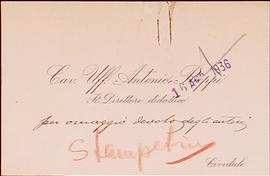 Cav. Uff. Antonio Rieppi
16 AGO. 1936
R. Direttore didattico
per omaggio devoto degli autori
Stampetin
Cividale